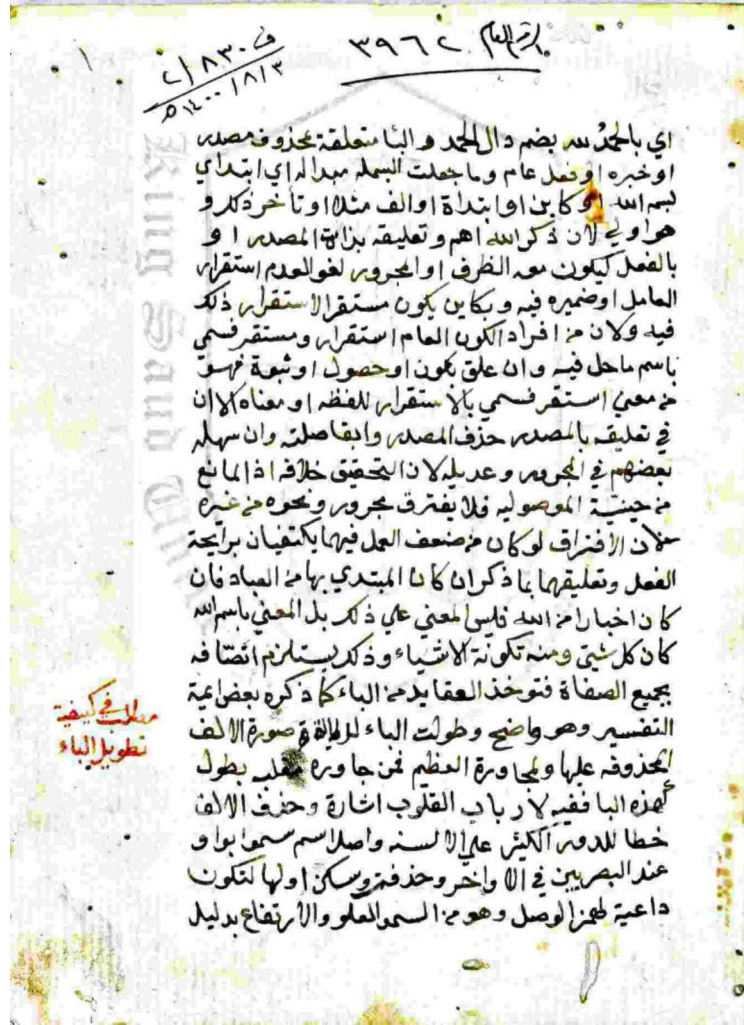 الرقم العام
٣٩٦٢
ف ٨٣٠ / ٢
١٤٠٠/٨/٣ هـ
١
اي بالحمدُ لله بضم دال الحمد و البا متعلقة بمحذوف مصدر
او خبره او فعل عام وما جعلت البسملة مبداله اي ابتداي
بسم الله او كاين او ابتداة او الف مثلا او تأخر ذكر و
هو اولي لان ذكر الله اهم و تعليقه بذاة المصدر او
بالفعل كيكون معه الظرف او المجرور لغو العدم استقرار
العامل او ضميره فيه و بكاين يكون مستقر الاستقرار ذلك
فيه ولان من افراد الكون العام استقرار ومستقر فسمي
باسم ماحل فيه و ان علق بكون او حصول او ثبوة فهو
من معني استقر فسمي بالاستقرار للفظه او معناه الا ان
في تعليقه بالمصدر حذف المصدر وابقا صلته وان سهله
بعضهم في المجرور و عديله لان التحقيق خلافه اذ المانع
من حيثية الموصوليه فلا يفترق مجرور و نحوه من غيره
لان الافتراق لو كان من ضعف العمل فيهما يكتفيان برايحة
الفعل وتعليقهما بما ذكر ان كان المبتدي بها من العباد فان
كان اخبارا من الله فليس المعني علي ذلك بل المعني باسم الله
كان كل شيئ ومنه تكونة الاشياء وذلك يستلزم اتصافه
بجميع الصفاة فتوخذ العقايد من الباء كما ذكره بعض ايمة
التفسير وهو واضح وطولت الباء للدلالة صورة الالف
المحذوفه علها ولمجاورة العظيم فمن جاوره بطول
هذه البا ففيه لارباب القلوب اشارة وحذف الالف
خطا للدور الكثير علي الالسنه واصل اسم سمو ابوا و
عند البصريين في الا واخر وحذفة وسكن اولها لتكون
داعية لهمز الوصل وهو من السمو العلو والارتفاع بدليل
مطلب في كيفية
تطويل الباء